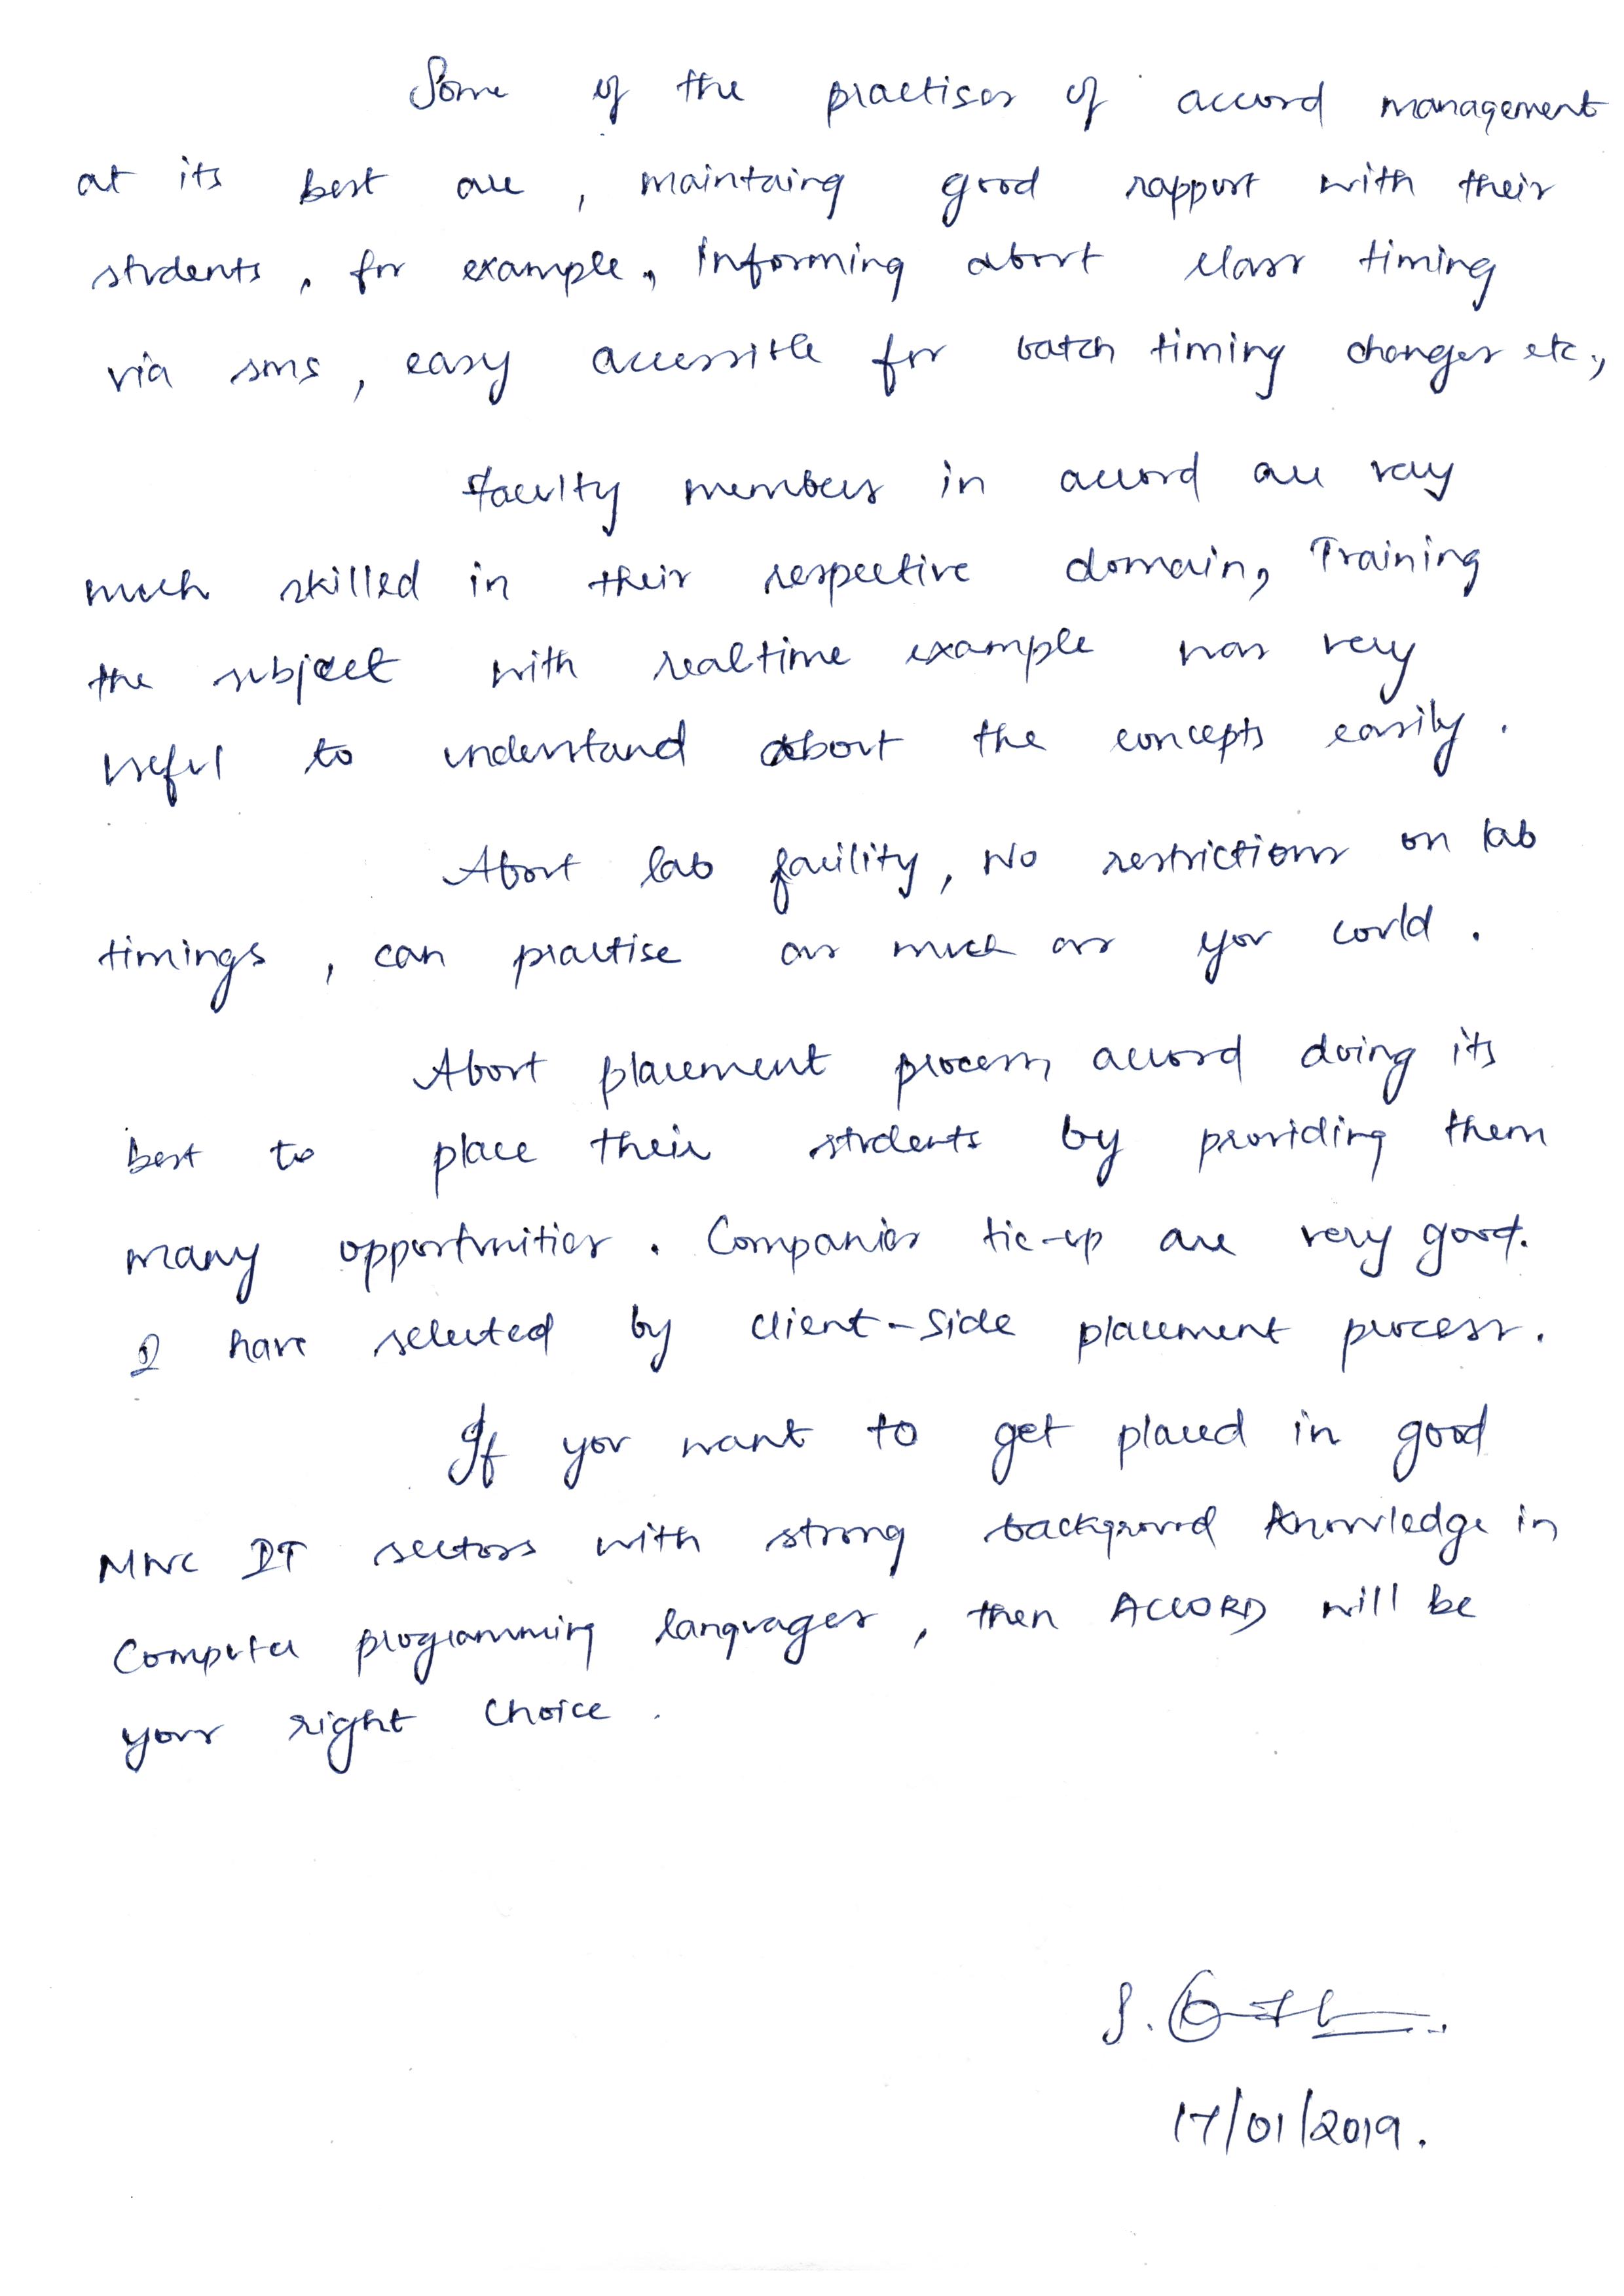 Some of the practises of accord management
at its best are , maintaing good rapport with their
students , for example, Informing about class timing
via sms , easy accessible for batch timing changes etc.,
Faculty members in accord are very
much skilled in their respective domain, Training
the subject with realtime example was very
useful to understand about the concepts easily .
About lab facility, No restrictions on lab
timings , can practise as much as you could .
About placement process, accord doing its
best to place their students by providing them
many opportunities . Companies tie-up are very good.
I have selected by client-side placement process.
If you want to get placed in good
MNC IT sectors with strong background knowledge in
Computer programming languages , then ACCORD will be
your right choice .
17/01/2019.